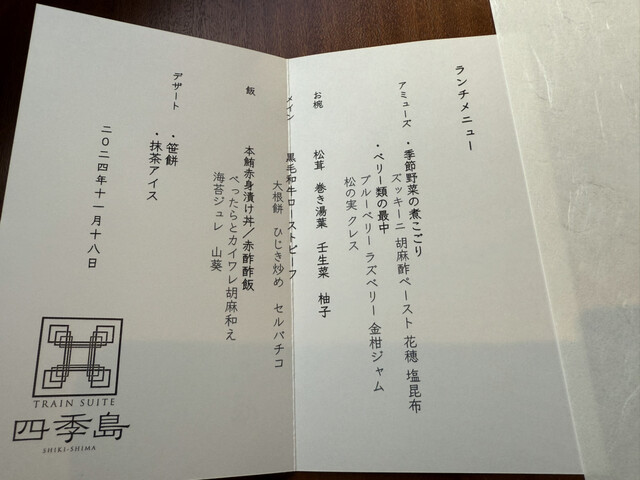 ランチメニュー
アミューズ
・季節野菜の煮こごり
ズッキーニ 胡麻酢ペースト 花穂 塩昆布
・ベリー類の最中
ブルーベリー ラズベリー 金柑ジャム
松の実 クレス
お椀
松茸 巻き湯葉 壬生菜 柚子
メイン
黒毛和牛ローストビーフ
大根餅 ひじき炒め セルバチコ
飯
本鮪赤身漬け丼/赤酢酢飯
べったらとカイワレ胡麻和え
海苔ジュレ 山葵
デザート
・笹餅
・抹茶アイス
二〇二四年十一月十八日
TRAIN SUITE
四季島
SHIKI-SHIMA